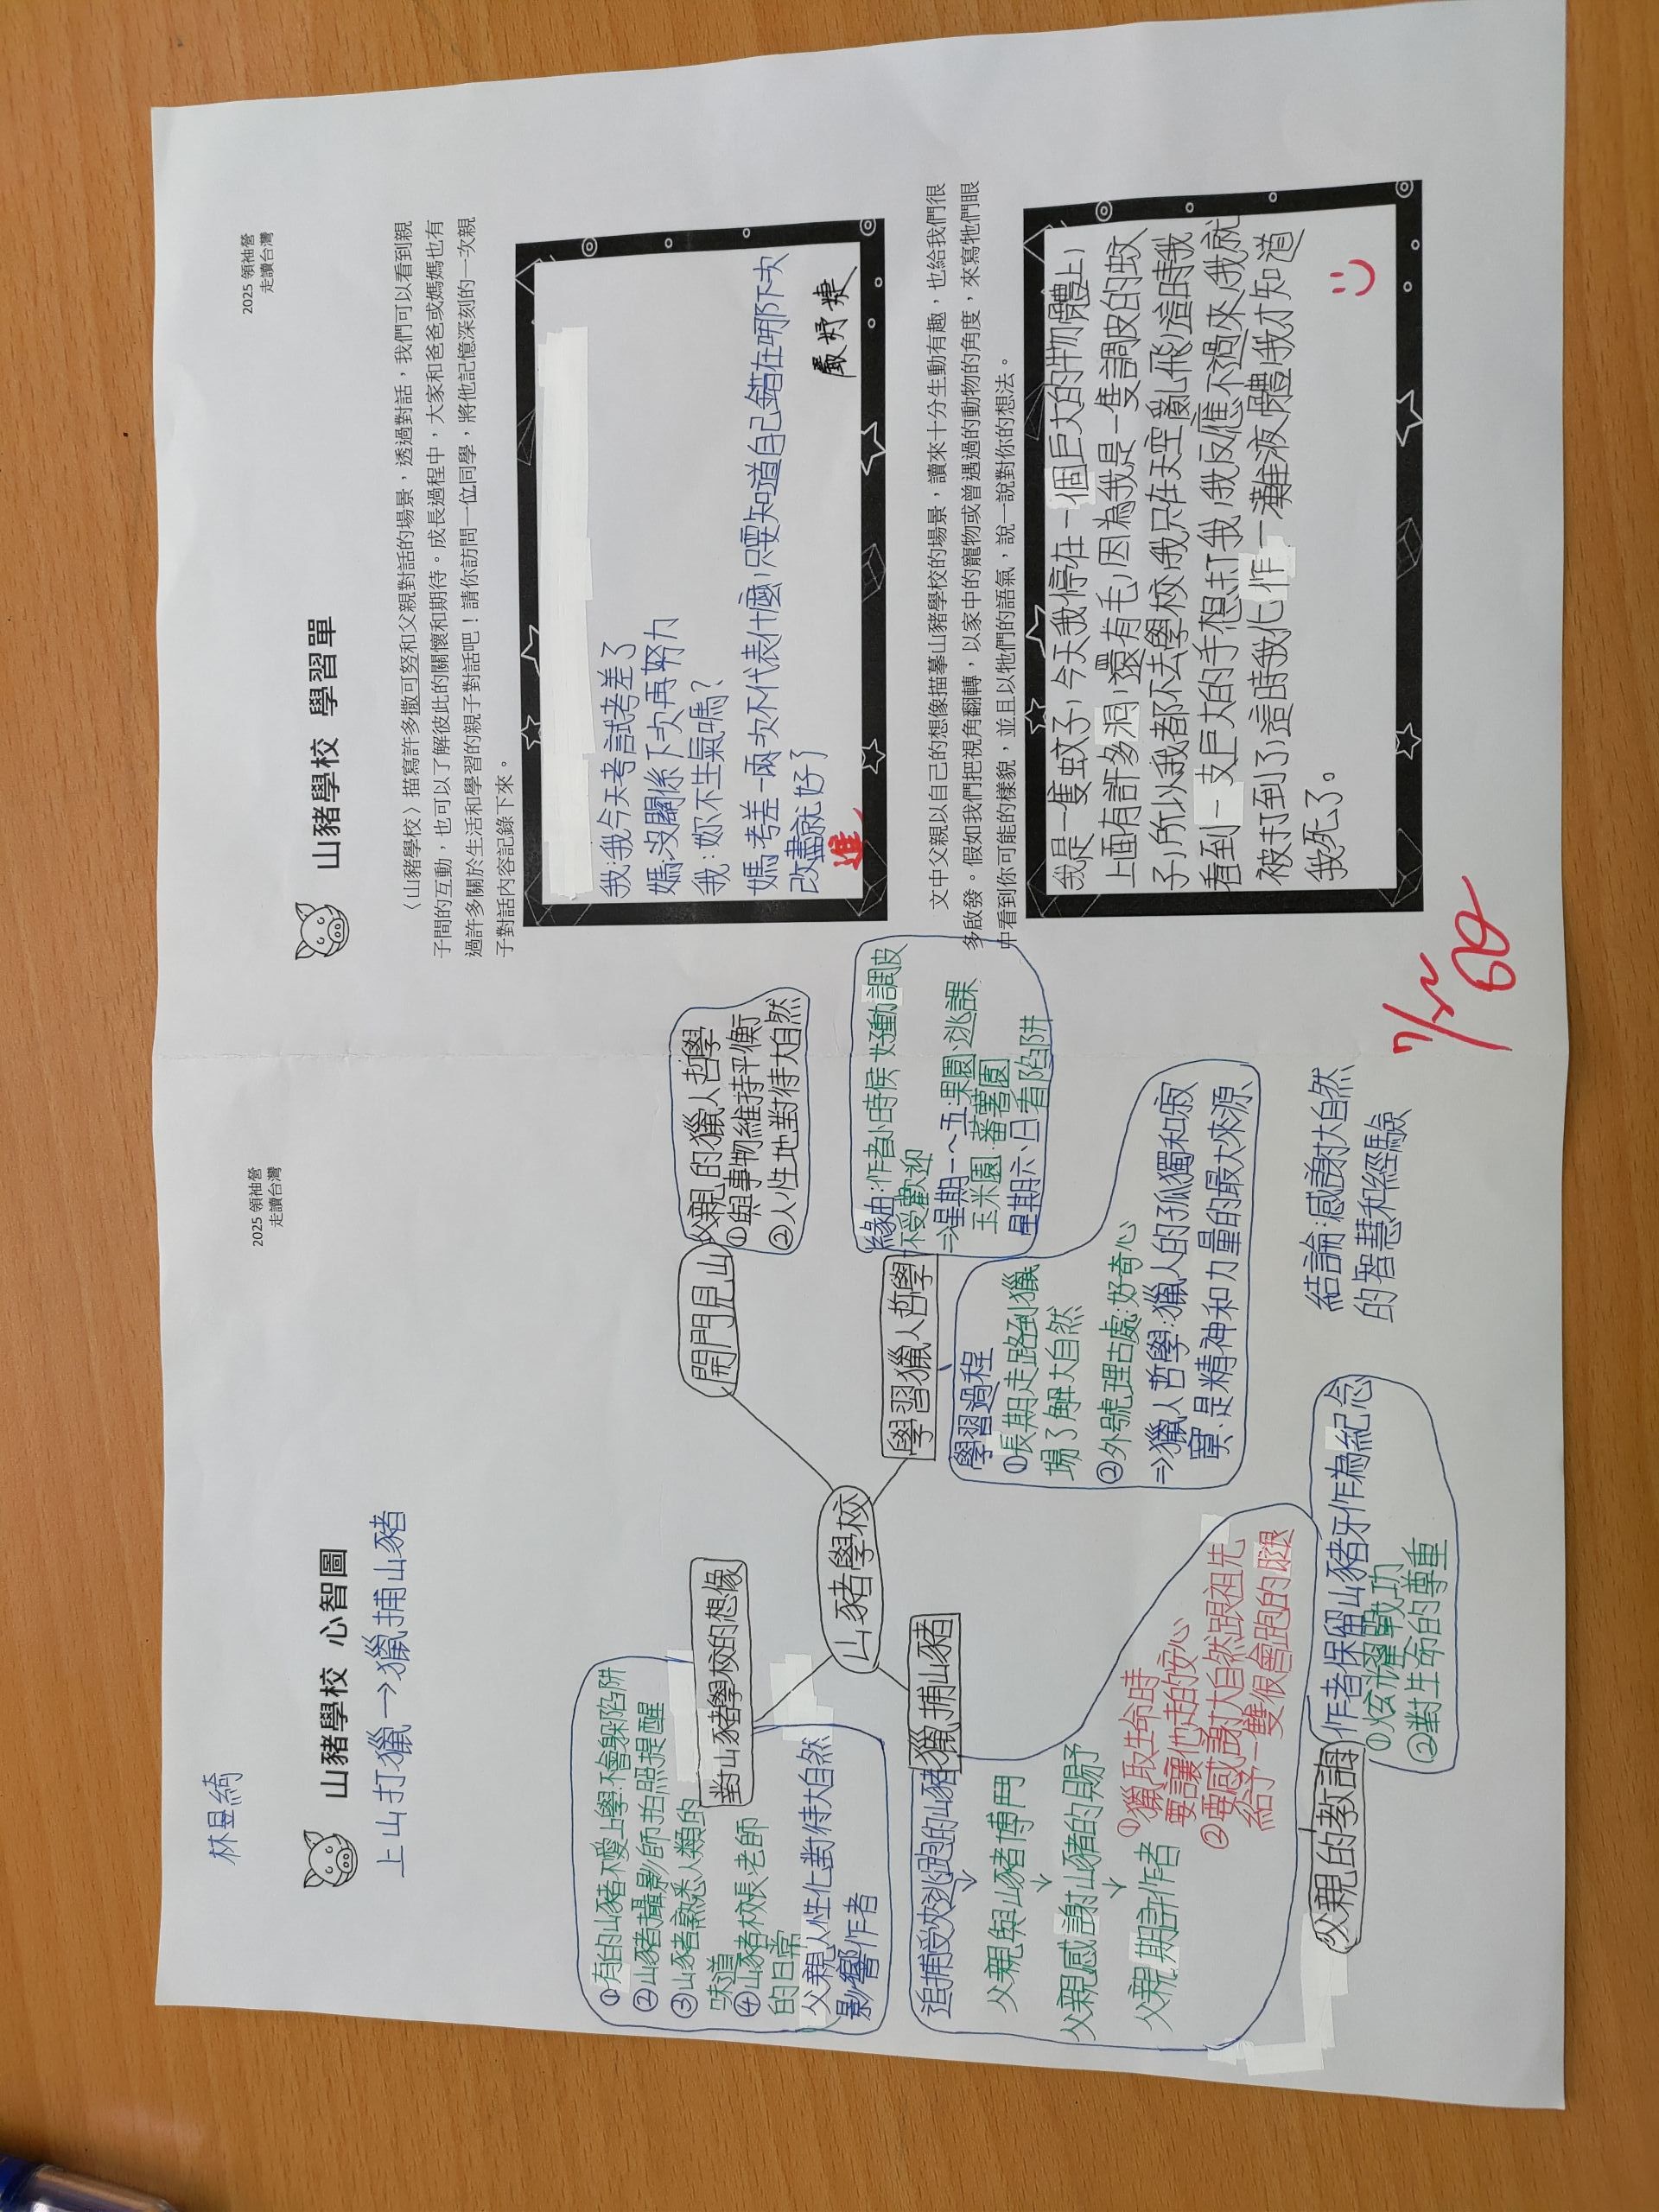 林昱綺
2025 領袖營
走讀台灣
山豬學校 心智圖
上山打獵→獵捕山豬
山豬學校
開門見山
父親的獵人哲學
①與事物維持平衡
②人性地對待大自然
學習獵人哲學
緣由:作者小時侯好動調皮
不受歡迎
⇒星期一~五:果園逃課
玉米園.蕃薯園
星期六、日看陷阱
學習過程
①長期走路到獵
場了解大自然
②外號理古處:好奇心
⇒獵人哲學:獵人的孤獨和寂
寞.是精神和力量的最大來源
對山豬學校的想像
①有的山豬不愛上學:不會躲陷阱
②山豬攝影師拍照提醒
③山豬熟悉人類的
味道
④山豬校長.老師
的日常
父親人性化對待大自然
影響作者
獵捕山豬
追捕受夾逃跑的山豬
↓
父親與山豬博鬥
↓
父親感謝山豬的賜予
↓
父親期許作者
①獵取生命時
要讓他走的安心
②要感謝大自然跟祖先
給予一雙很會跑的腿
父親的教誨
作者保留山豬牙作為紀念
①炫耀戰功
②對生命的尊重
結論:感謝大自然
的智慧和經驗
2025 領袖營
走讀台灣
山豬學校 學習單
〈山豬學校〉描寫許多撒可努和父親對話的場景，透過對話，我們可以看到親
子間的互動，也可以了解彼此的關懷和期待。成長過程中，大家和爸爸或媽媽也有
過許多關於生活和學習的親子對話吧！請你訪問一位同學，將他記憶深刻的一次親
子對話內容記錄下來。
我:我今天考試考差了
媽:沒關係下次再努力
我:妳不生氣嗎?
媽考差一兩次不代表什麼,只要知道自己錯在哪下次
改盡就好了
進
嚴妤婕
文中父親以自己的想像描摹山豬學校的場景，讀來十分生動有趣，也給我們很
多啟發。假如我們把視角翻轉，以家中的寵物或曾遇過的動物的角度，來寫牠們眼
中看到你可能的樣貌，並且以牠們的語氣，說一說對你的想法。
我是一隻蚊子,今天我停在一個巨大的物體上,
上面有許多洞,還有毛,因為我是一隻調皮的蚊
子,所以我都不去學校,我只在天空亂飛,這時我
看到一支巨大的手想打我,我反應不過來,我就
被打到了,這時我化作一灘液體我才知道
我死了。